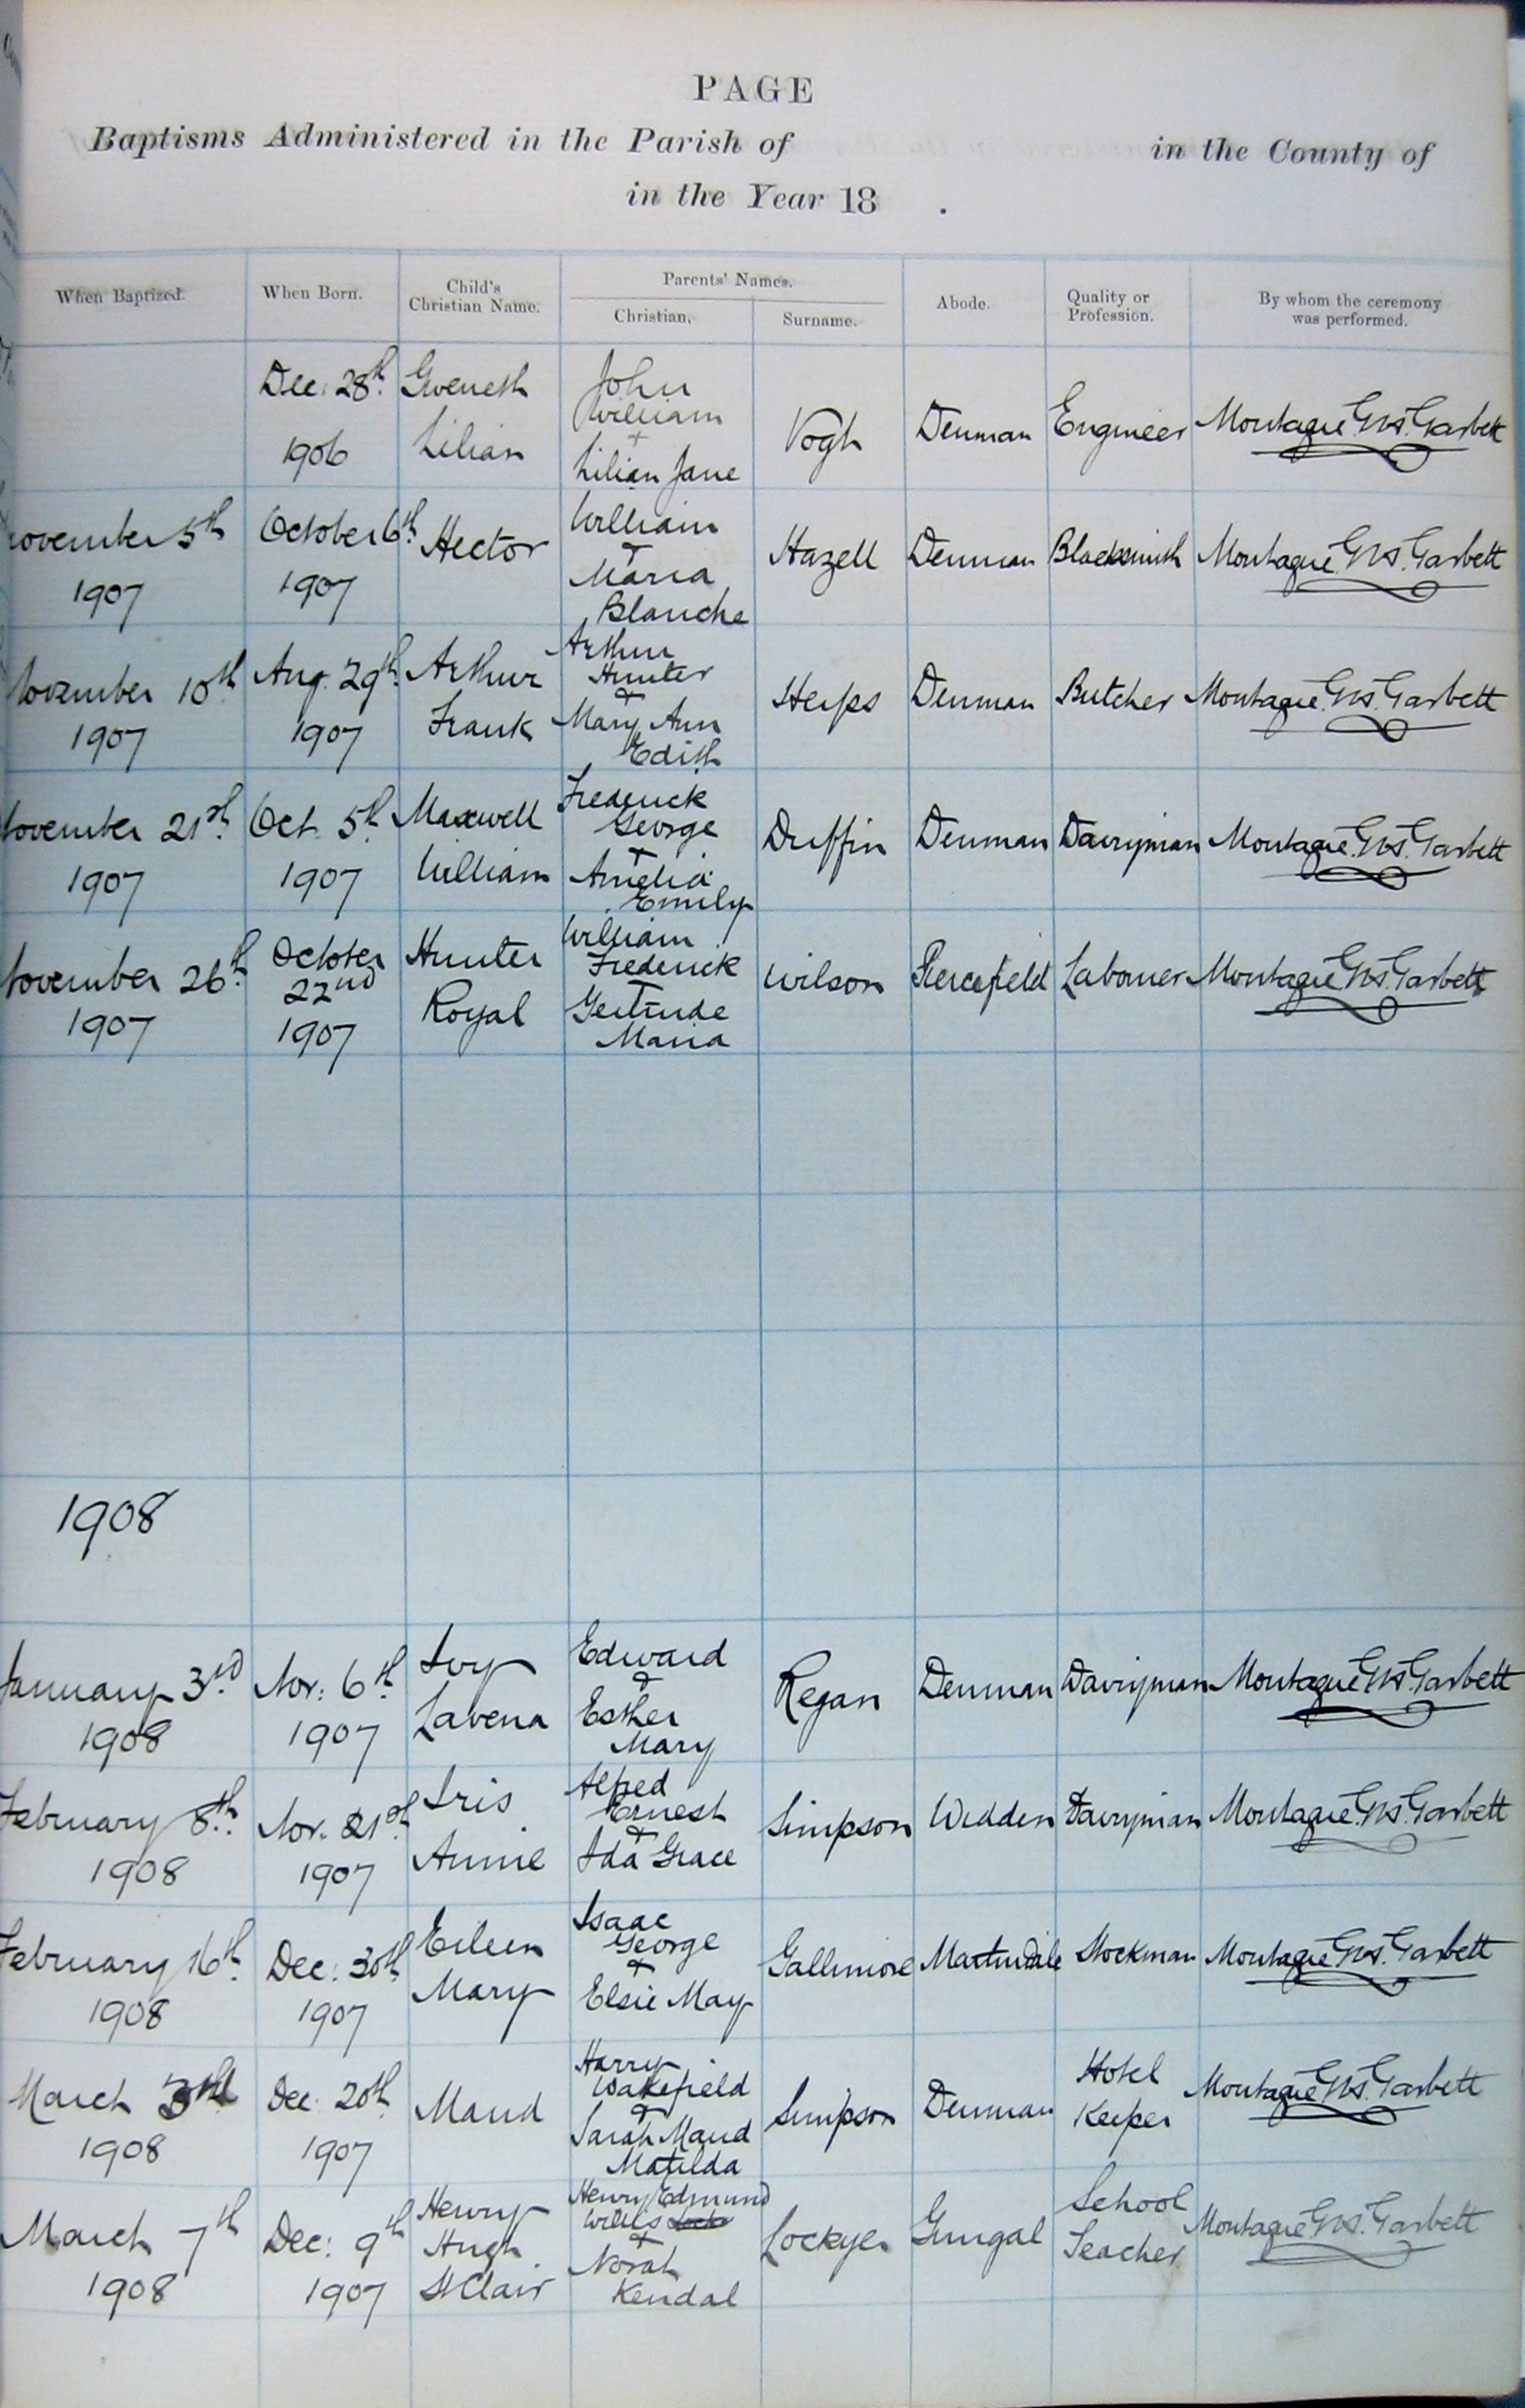 PAGE
Baptisms Administered in the Parish of in the County of
in the Year 18 .
When Baptized. When Born. Child's Christian Name. Parents' Names. Christian. Surname. Abode. Quality or Profession. By whom the ceremony was performed.
Dec: 28th 1906 Gweneth Lilian John William + Lilian Jane Vogh Denman Engineer Montague G.W. Garbett
November 5th 1907 October 6th 1907 Hector William + Maria Blanche Hazell Denman Blacksmith Montague G.W. Garbett
November 10th 1907 Aug. 29th 1907 Arthur Frank Arthur Hunter + Mary Ann Edith Heips Denman Butcher Montague G.W. Garbett
November 21st 1907 Oct. 5th 1907 Maxwell William Frederick George + Amelia Emily Duffin Denman Dairyman Montague G.W. Garbett
November 26th 1907 October 22nd 1907 Hunter Royal William Frederick + Gertrude Maria Wilson Piercefield Labourer Montague G.W. Garbett
1908
January 3rd 1908 Nov: 6th 1907 Ivy Lavena Edward + Esther Mary Regan Denman Dairyman Montague G.W. Garbett
February 8th 1908 Nov. 21st 1907 Iris Annie Alfred Ernest + Ida Grace Simpson Widden Dairyman Montague G.W. Garbett
February 16th 1908 Dec: 30th 1907 Eileen Mary Isaac George + Elsie May Gallimore Martindale Stockman Montague G.W. Garbett
March 1908 Dec: 20th 1907 Maud Harry Wakefield + Sarah Maud Matilda Simpson Denman Hotel Keeper Montague G.W. Garbett
March 7th 1908 Dec: 9th 1907 Henry Hugh StClair Henry Edmund Willis + Norah Kendal Lockyer Gungal School Teacher Montague G.W. Garbett